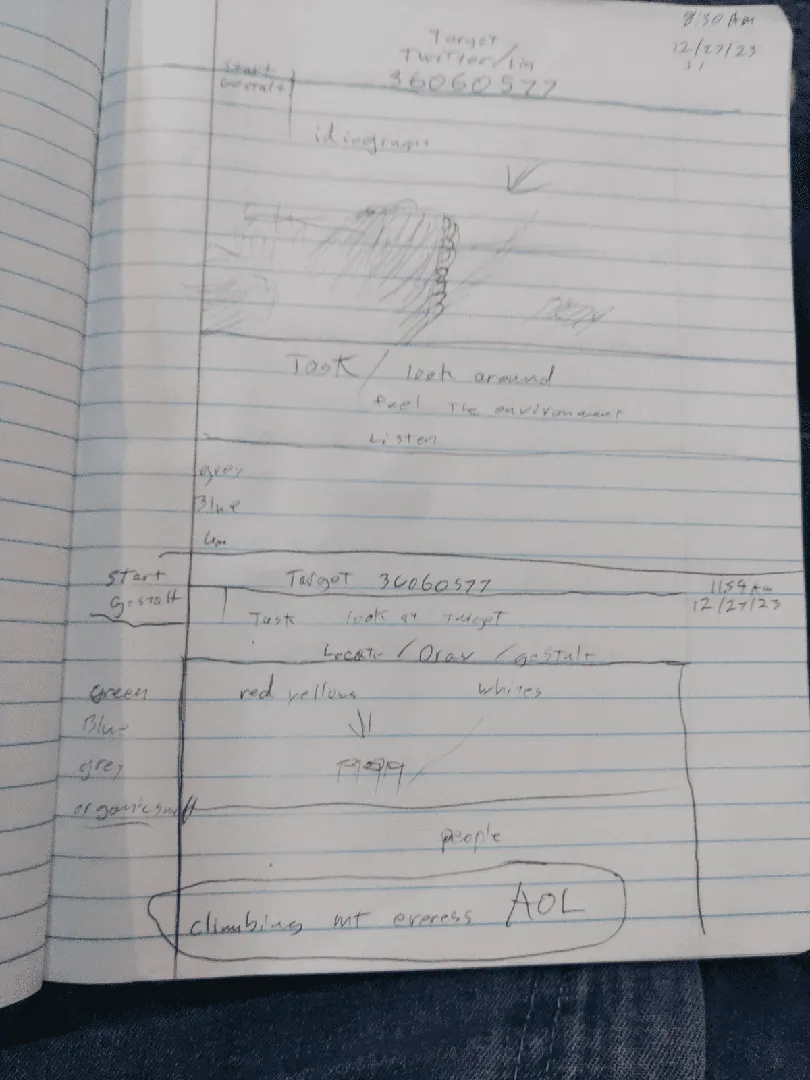 8:30 AM
12/27/23
Target
Twitter/
36060577
Start
Gestalt
idiograms
Task / look around
feel The environment
Listen
grey
Blue
Start
Target 36060577
1154 Am
12/27/23
Gestalt
Task look at Target
Locate / Draw / gestalt
green
red yellows
whites
Blue
grey
organic stuff
people
climbing mt everess AOL